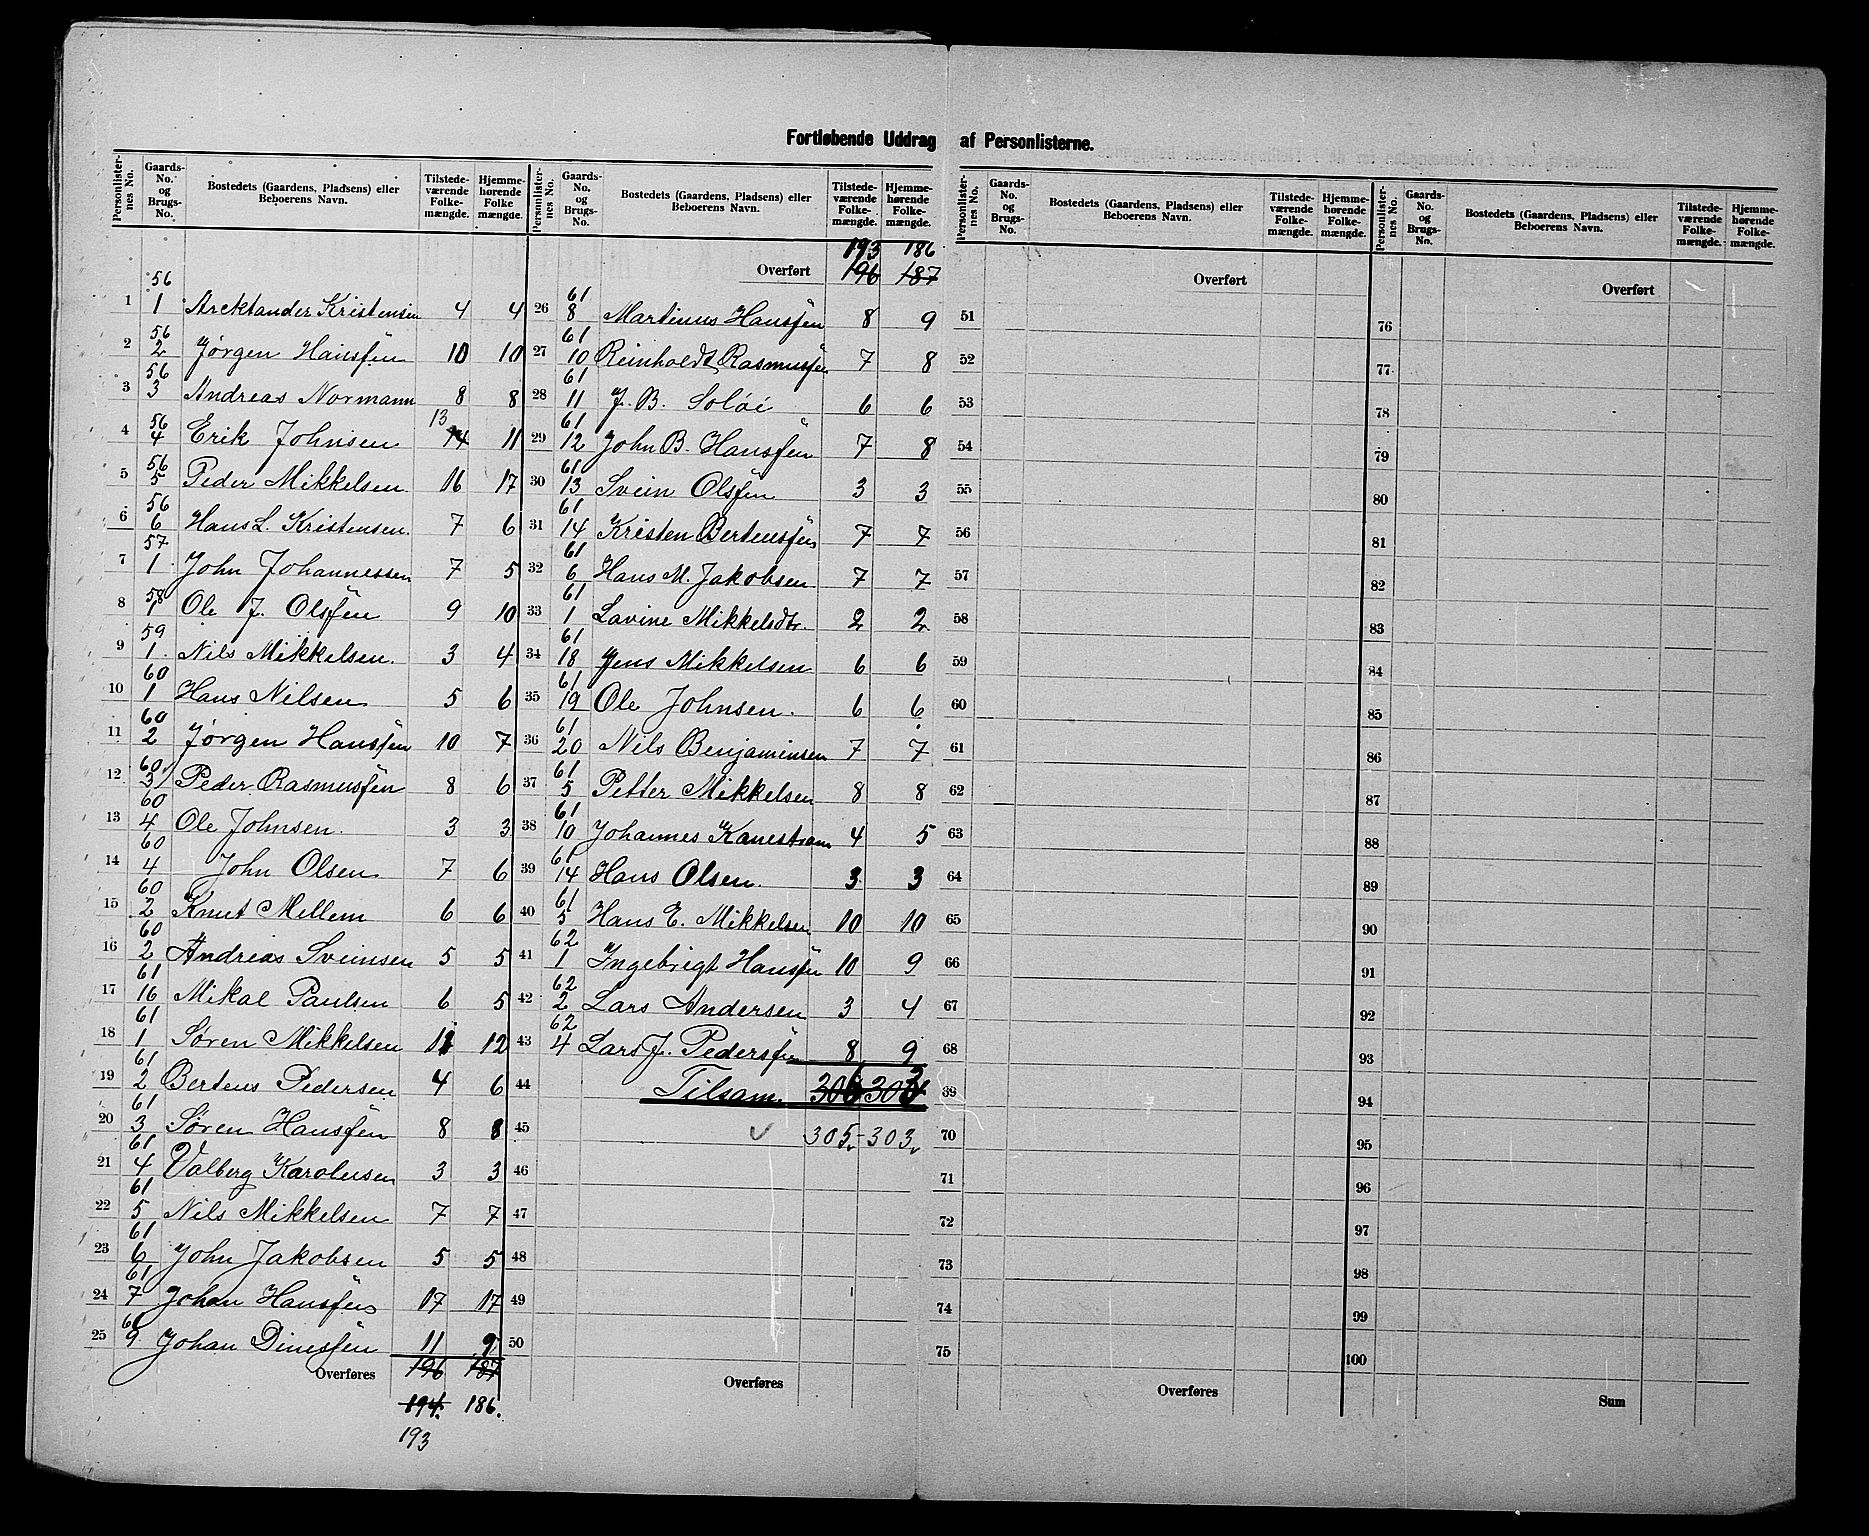 Fortløbende Uddrag af Personlisterne.
Personlister-nes No. | Gaards-No. og Brugs-No. | Bostedets (Gaardens, Pladsens) eller Beboerens Navn. | Tilstede-værende Folke-mængde. | Hjemme-hørende Folke mængde.
1 | 56 1 | Arcktander Kristensen | 4 | 4
2 | 56 2 | Jørgen Hanssen | 10 | 10
3 | 56 3 | Andreas Normann | 8 | 8
4 | 56 4 | Erik Johnsen | 13 14 | 11
5 | 56 5 | Peder Mikkelsen | 16 | 17
6 | 56 6 | Hans L. Kristensen. | 7 | 6
7 | 57 1 | John Johannessen | 7 | 5
8 | 58 1 | Ole J. Olssen | 9 | 10
9 | 59 1 | Nils Mikkelsen. | 3 | 4
10 | 60 1 | Hans Nilsen | 5 | 6
11 | 60 2 | Jørgen Hanssen | 10 | 7
12 | 60 3 | Peder Rasmussen | 8 | 6
13 | 60 4 | Ole Johnsen. | 3 | 3
14 | 60 4 | John Olsen | 7 | 6
15 | 60 2 | Knut Mellem | 6 | 6
16 | 60 2 | Andreas Sveinsen | 5 | 5
17 | 61 16 | Mikal Paulsen | 6 | 5
18 | 61 1 | Søren Mikkelsen | 11 | 12
19 | 61 2 | Bertens Pedersen | 4 | 6
20 | 61 3 | Søren Hanssen | 8 | 8
21 | 61 4 | Valberg Karolussen | 3 | 3
22 | 61 5 | Nils Mikkelsen | 7 | 7
23 | 61 6 | John Jakobsen | 5 | 5
24 | 61 7 | Johan Hanssen | 17 | 17
25 | 61 9 | Johan Dinessen | 11 | 9
Overføres | 196 | 187
194. | 186.
193
Personlister-nes No. | Gaards-No. og Brugs-No. | Bostedets (Gaardens, Pladsens) eller Beboerens Navn. | Tilstede-værende Folke-mængde. | Hjemme-hørende Folke-mængde.
193 | 186
Overført | 196 | 187
26 | 61 8 | Martinus Hanssen | 8 | 9
27 | 61 10 | Reinholdt Rasmussen | 7 | 8
28 | 61 11 | J. B. Soløi | 6 | 6
29 | 61 12 | John B. Hanssen | 7 | 8
30 | 61 13 | Svein Olssen | 3 | 3
31 | 61 14 | Kristen Bertenssen | 7 | 7
32 | 61 6 | Hans M. Jakobsen | 7 | 7
33 | 61 1 | Lavine Mikkelsdtr. | 2 | 2
34 | 61 18 | Jens Mikkelsen | 6 | 6
35 | 61 19 | Ole Johnsen. | 6 | 6
36 | 61 20 | Nils Benjaminsen | 7 | 7
37 | 61 5 | Petter Mikkelsen | 8 | 8
38 | 61 10 | Johannes Kanestrøm | 4 | 5
39 | 61 14 | Hans Olsen. | 3 | 3
40 | 61 5 | Hans E. Mikkelsen | 10 | 10
41 | 62 1 | Ingebrigt Hanssen | 10 | 9
42 | 62 2 | Lars Andersen | 3 | 4
43 | 62 4 | Lars J. Pederssen | 8 | 9
44 | Tilsam. | 306 | 303
45 | 305 - 303
46
47
48
49
50
Overføres
Personlister-nes No. | Gaards-No. og Brugs-No. | Bostedets (Gaardens, Pladsens) eller Beboerens Navn. | Tilstede-værende Folke-mængde. | Hjemme-hørende Folke-mængde.
Overført
51
52
53
54
55
56
57
58
59
60
61
62
63
64
65
66
67
68
39
70
71
72
73
74
75
Overføres
Personlister-nes No. | Gaards-No. og Brugs-No. | Bostedets (Gaardens, Pladsens) eller Beboerens Navn. | Tilstede-værende Folke-mængde. | Hjemme-hørende Folke-mængde.
Overført
76
77
78
79
80
81
82
83
84
85
86
87
88
89
90
91
92
93
94
95
96
97
98
99
100
Sum